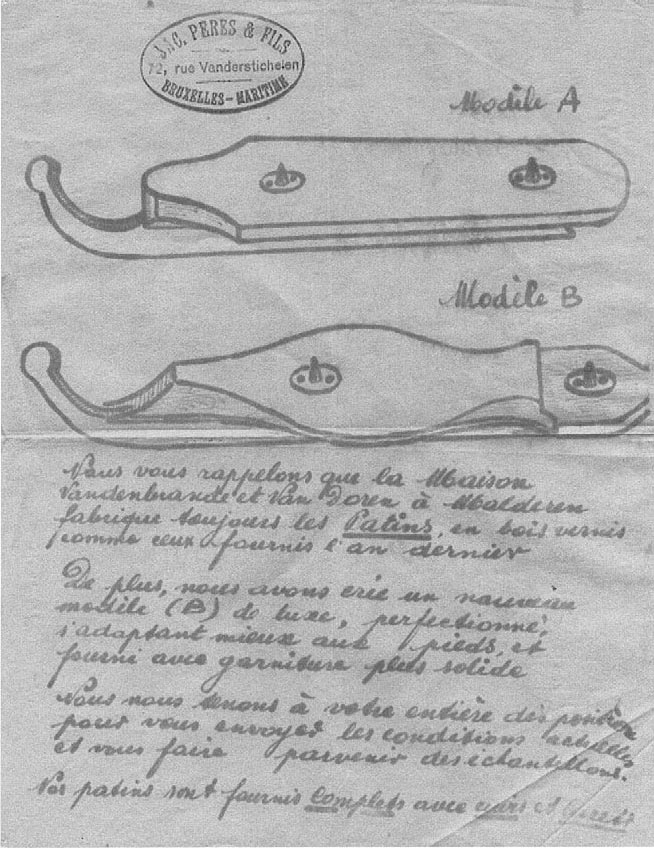 J. & C. PERES & FILS
72, rue Vanderstichelen
BRUXELLES-MARITIME
Modèle A
Modèle B
Nous vous rappelons que la Maison
Vandenbrande et Van Doren à Malderen
fabrique toujours les Patins, en bois vernis
comme ceux fournis l'an dernier
De plus, nous avons créé un nouveau
modèle (B) de luxe, perfectionné,
s'adaptant mieux aux pieds, et
fourni avec garniture plus solide
Nous nous tenons à votre entière disposition
pour vous envoyer les conditions actuelles
et vous faire parvenir des échantillons.
Nos patins sont fournis complets avec cuirs et